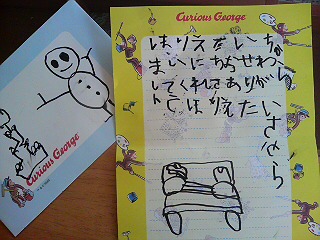 Curious George
はりえだいち
まいにちおせわ
してくれてありが
とはりえたい
Curious George